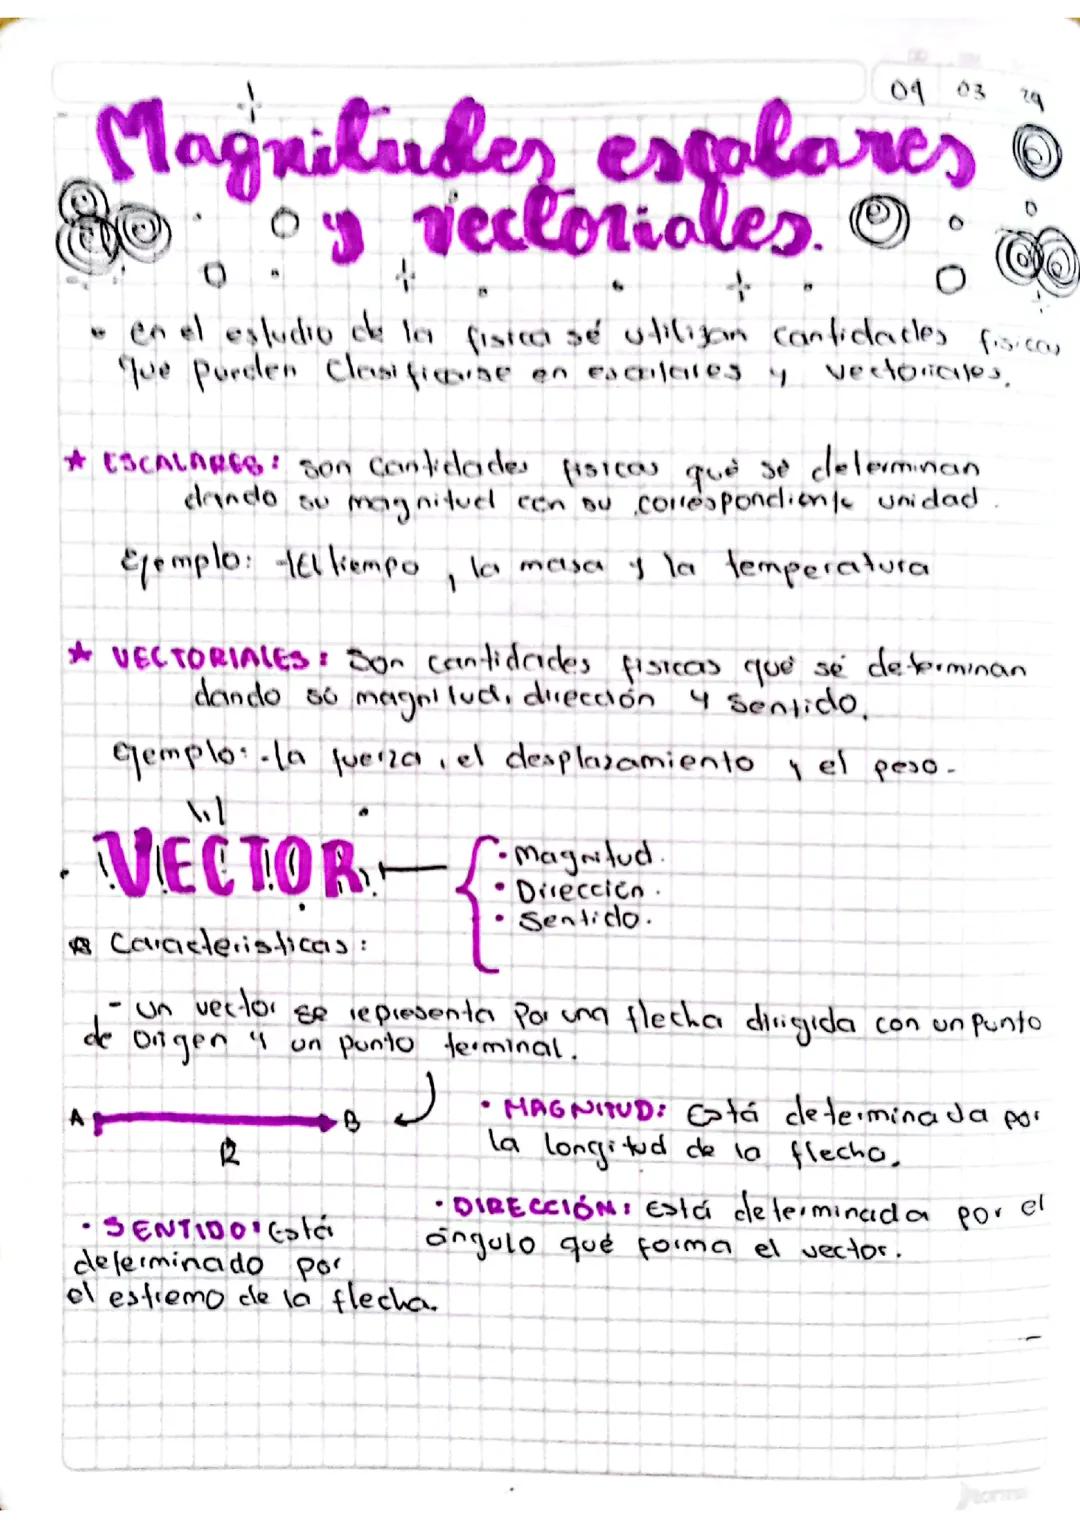 04 03 24
Magnitudes escalares
y vectoriales.
en el estudio de la fisica sé utilizan cantidades fisicas
que pueden Clasificarse en escalares y vectoriales.
ESCALARES: son cantidades fisicas qué sé determinan
dando su magnitud con su correspondiente unidad.
Ejemplo: -El tiempo, la masa y la temperatura
VECTORIALES: Son cantidades fisicas qué sé determinan
dando su magnitud, dirección y sentido.
ejemplo: -la fuerza, el desplazamiento y el peso-
VECTOR
· Magnitud.
· Dirección.
· Sentido.
Caracteristicas:
- un vector se representa Por una flecha dirigida con un Punto
de origen y un punto terminal.
A B
· MAGNITUD: Está determinada por
la longitud de la flecha.
· DIRECCIÓN: Está determinada por el
ángulo qué forma el vector.
· SENTIDO: Está
determinado por
el estremo de la flecha.
norma